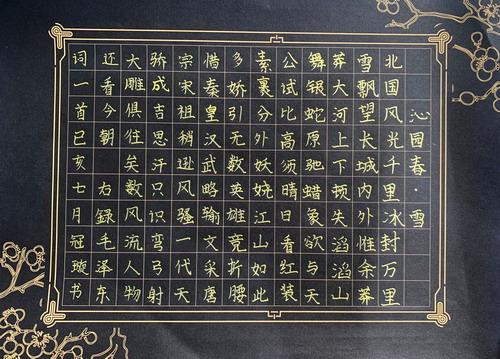 沁园春·雪
北国风光千里冰封万里
雪飘望长城内外惟余莽
莽大河上下顿失滔滔山
舞银蛇原驰蜡象欲与天
公试比高须晴日看红装
素裹分外妖娆江山如此
多娇引无数英雄竞折腰
惜秦皇汉武略输文采唐
宗宋祖稍逊风骚一代天
骄成吉思汗只识弯弓射
大雕俱往矣数风流人物
还看今朝 右録毛泽东
词一首己亥七月冠璇书